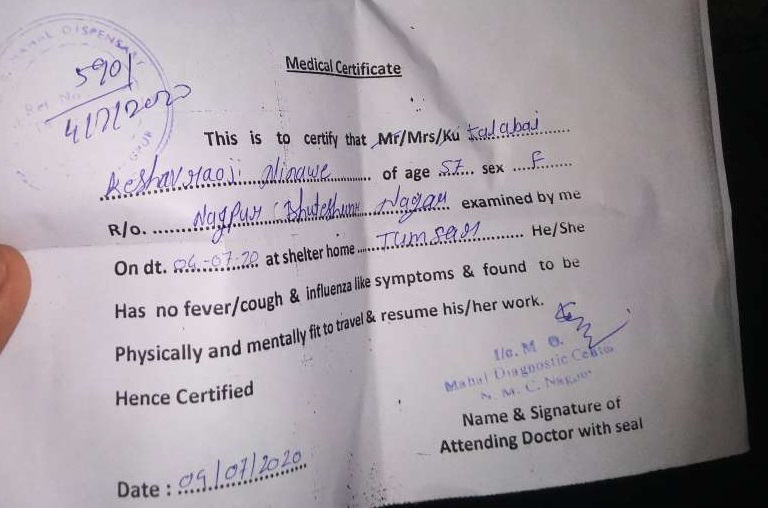 MAHAL DISPENSARY
5901
4/7/2020
Medical Certificate
This is to certify that Mr/Mrs/Ku Kalabai
Keshavraoji Ninawe of age 57 sex F
R/o. Nagpur Bhuteshwar Nagar examined by me
On dt. 04-07-20 at shelter home Tumsar He/She
Has no fever/cough & influenza like symptoms & found to be
Physically and mentally fit to travel & resume his/her work.
Hence Certified
I/c. M O.
Mahal Diagnostic Center
N. M. C. Nagpur
Name & Signature of
Attending Doctor with seal
Date : 04/07/2020